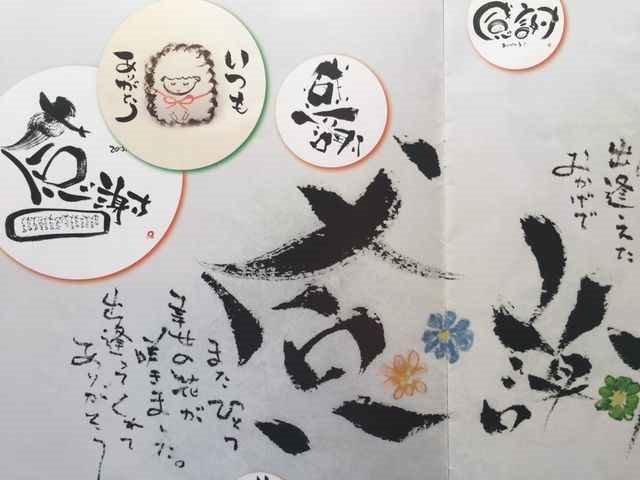 感謝
いつも
ありがとう
感謝
感謝
出逢えた
おかげで
感謝
またひとつ
幸せの花が
咲きました。
出逢ってくれて
ありがとう